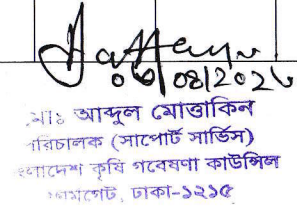 ০৬/০৪/২০২৬
মোঃ আব্দুল মোত্তাকিন
পরিচালক (সাপোর্ট সার্ভিস)
বাংলাদেশ কৃষি গবেষণা কাউন্সিল
ফার্মগেট, ঢাকা-১২১৫